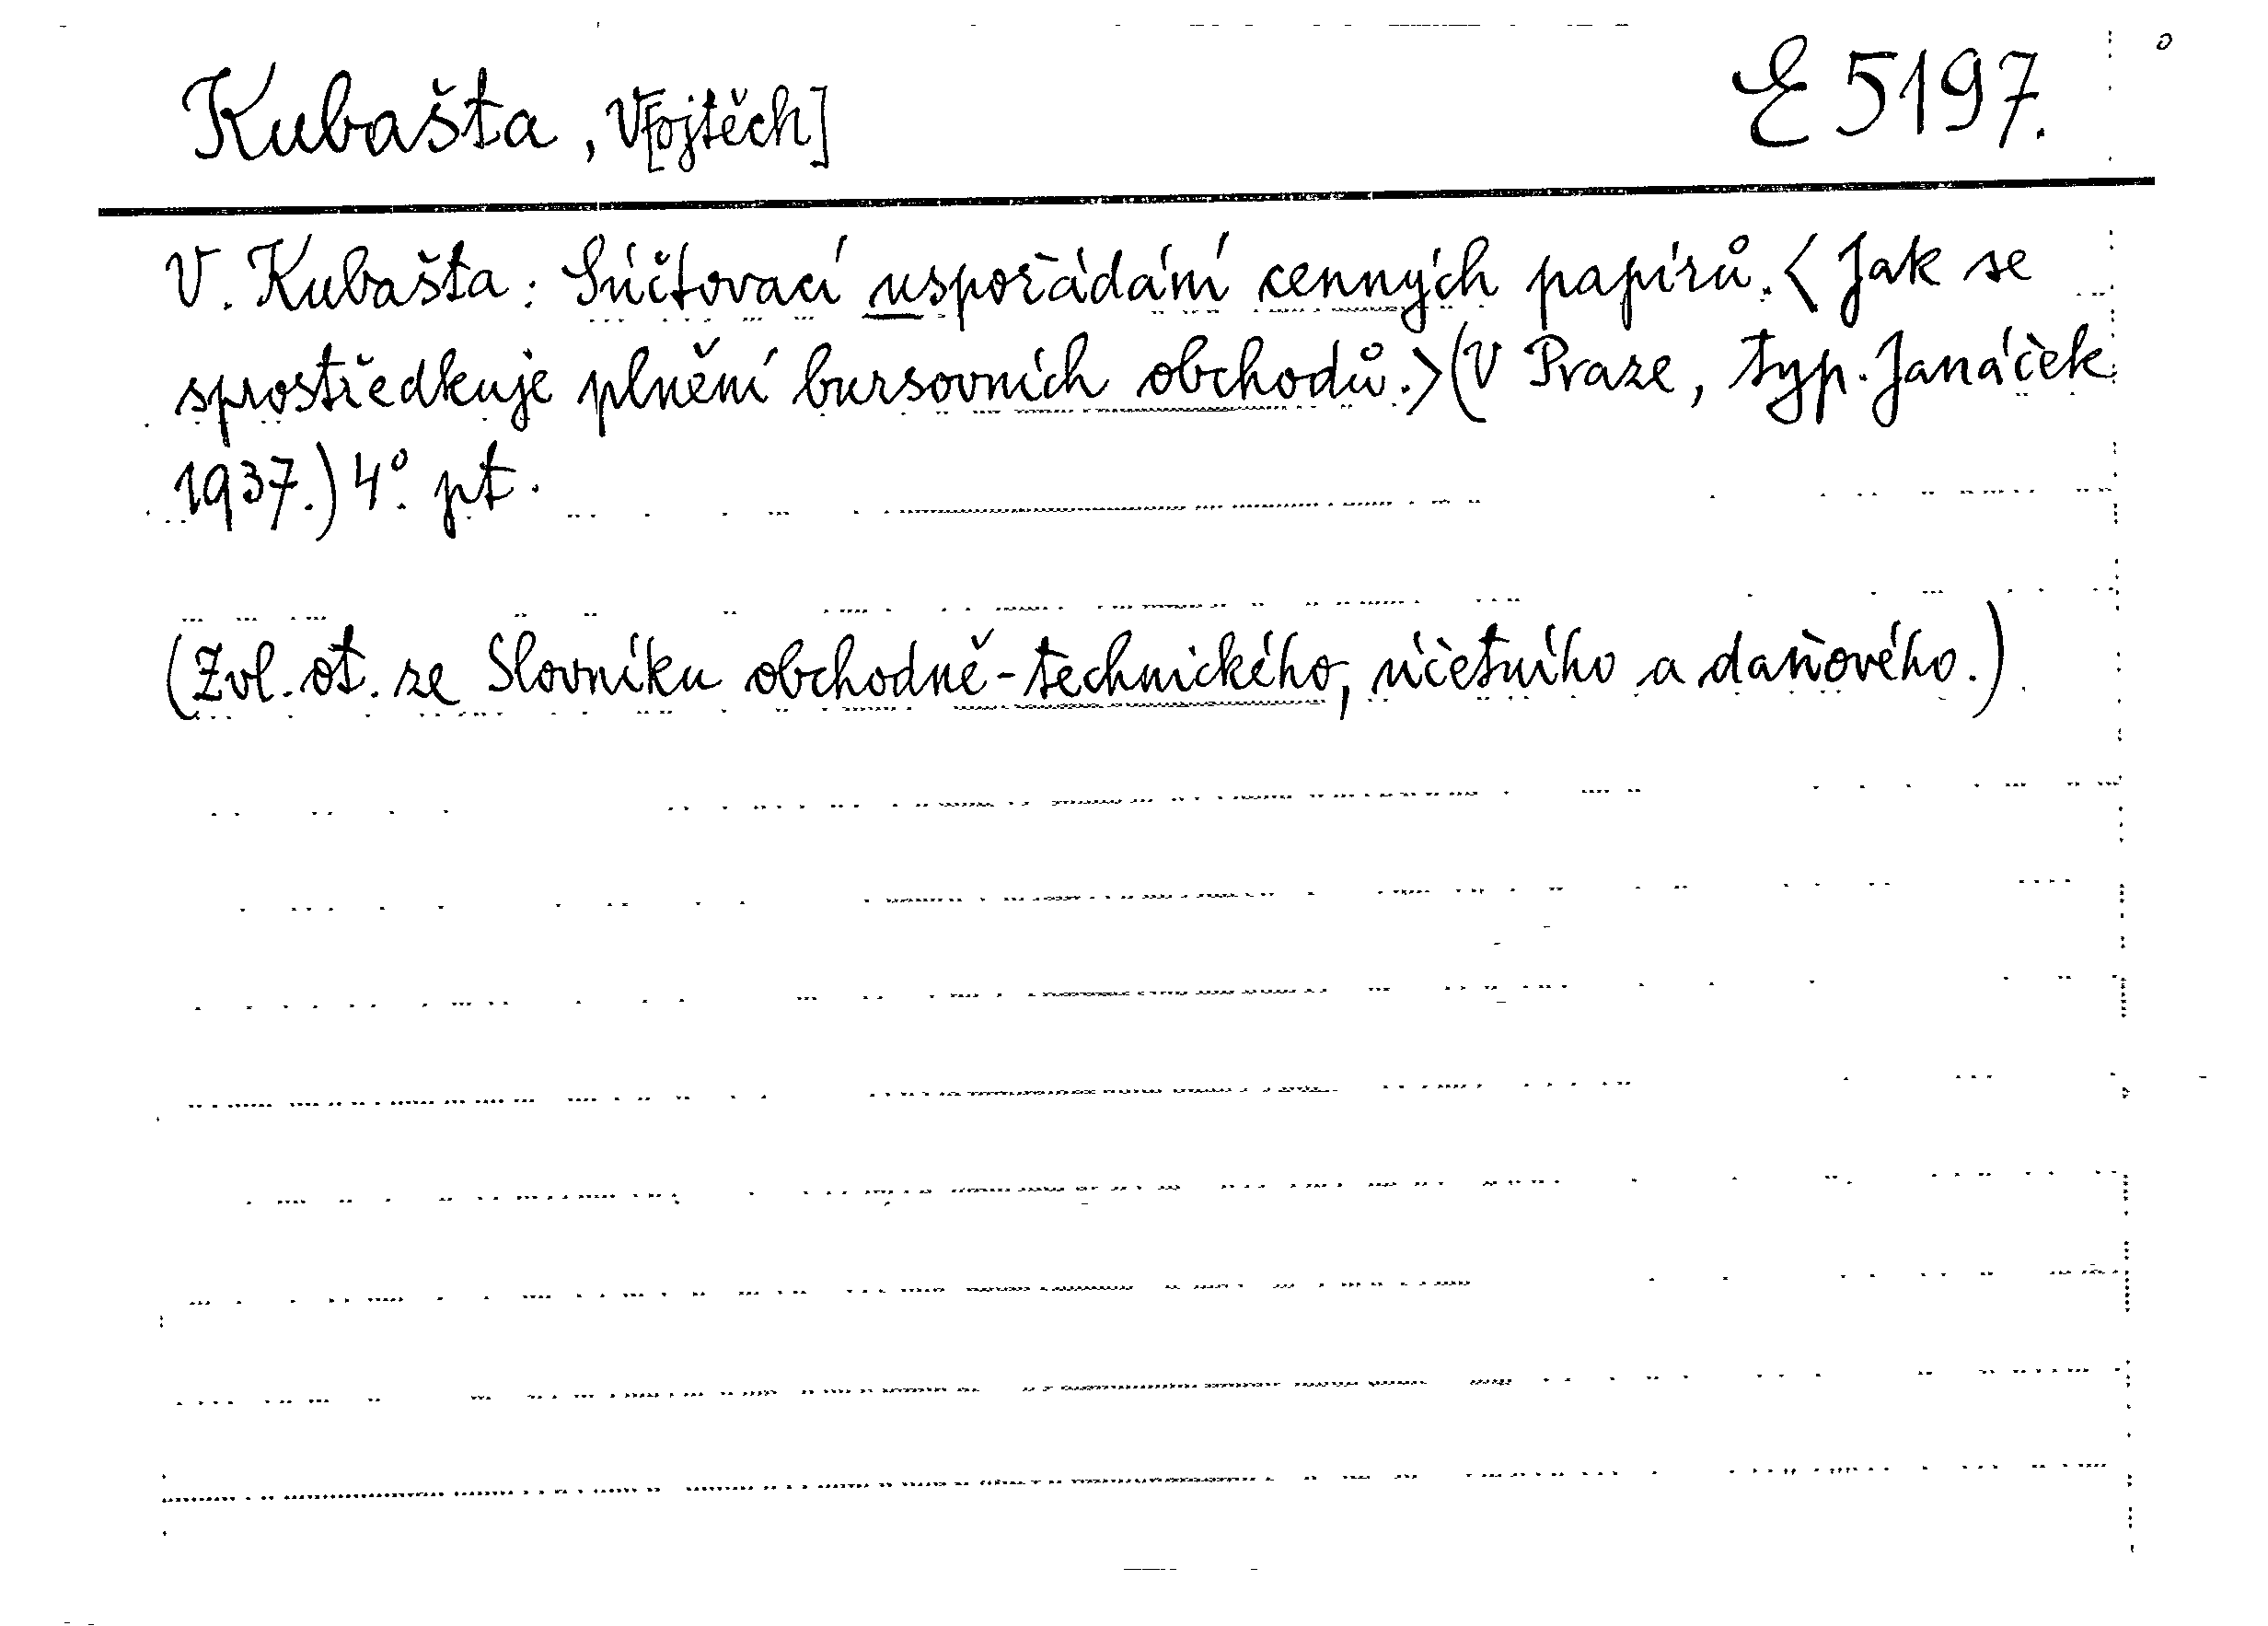 Kubašta, V[ojtěch] E 5197.
V. Kubašta: Súčtovací uspořádání cenných papírů. < Jak se
sprostředkuje plnění bursovních obchodů. > (V Praze, typ. Janáček
1937.) 4°. pt.
(Zvl. ot. ze Slovníku obchodně-technického, účetního a daňového.)